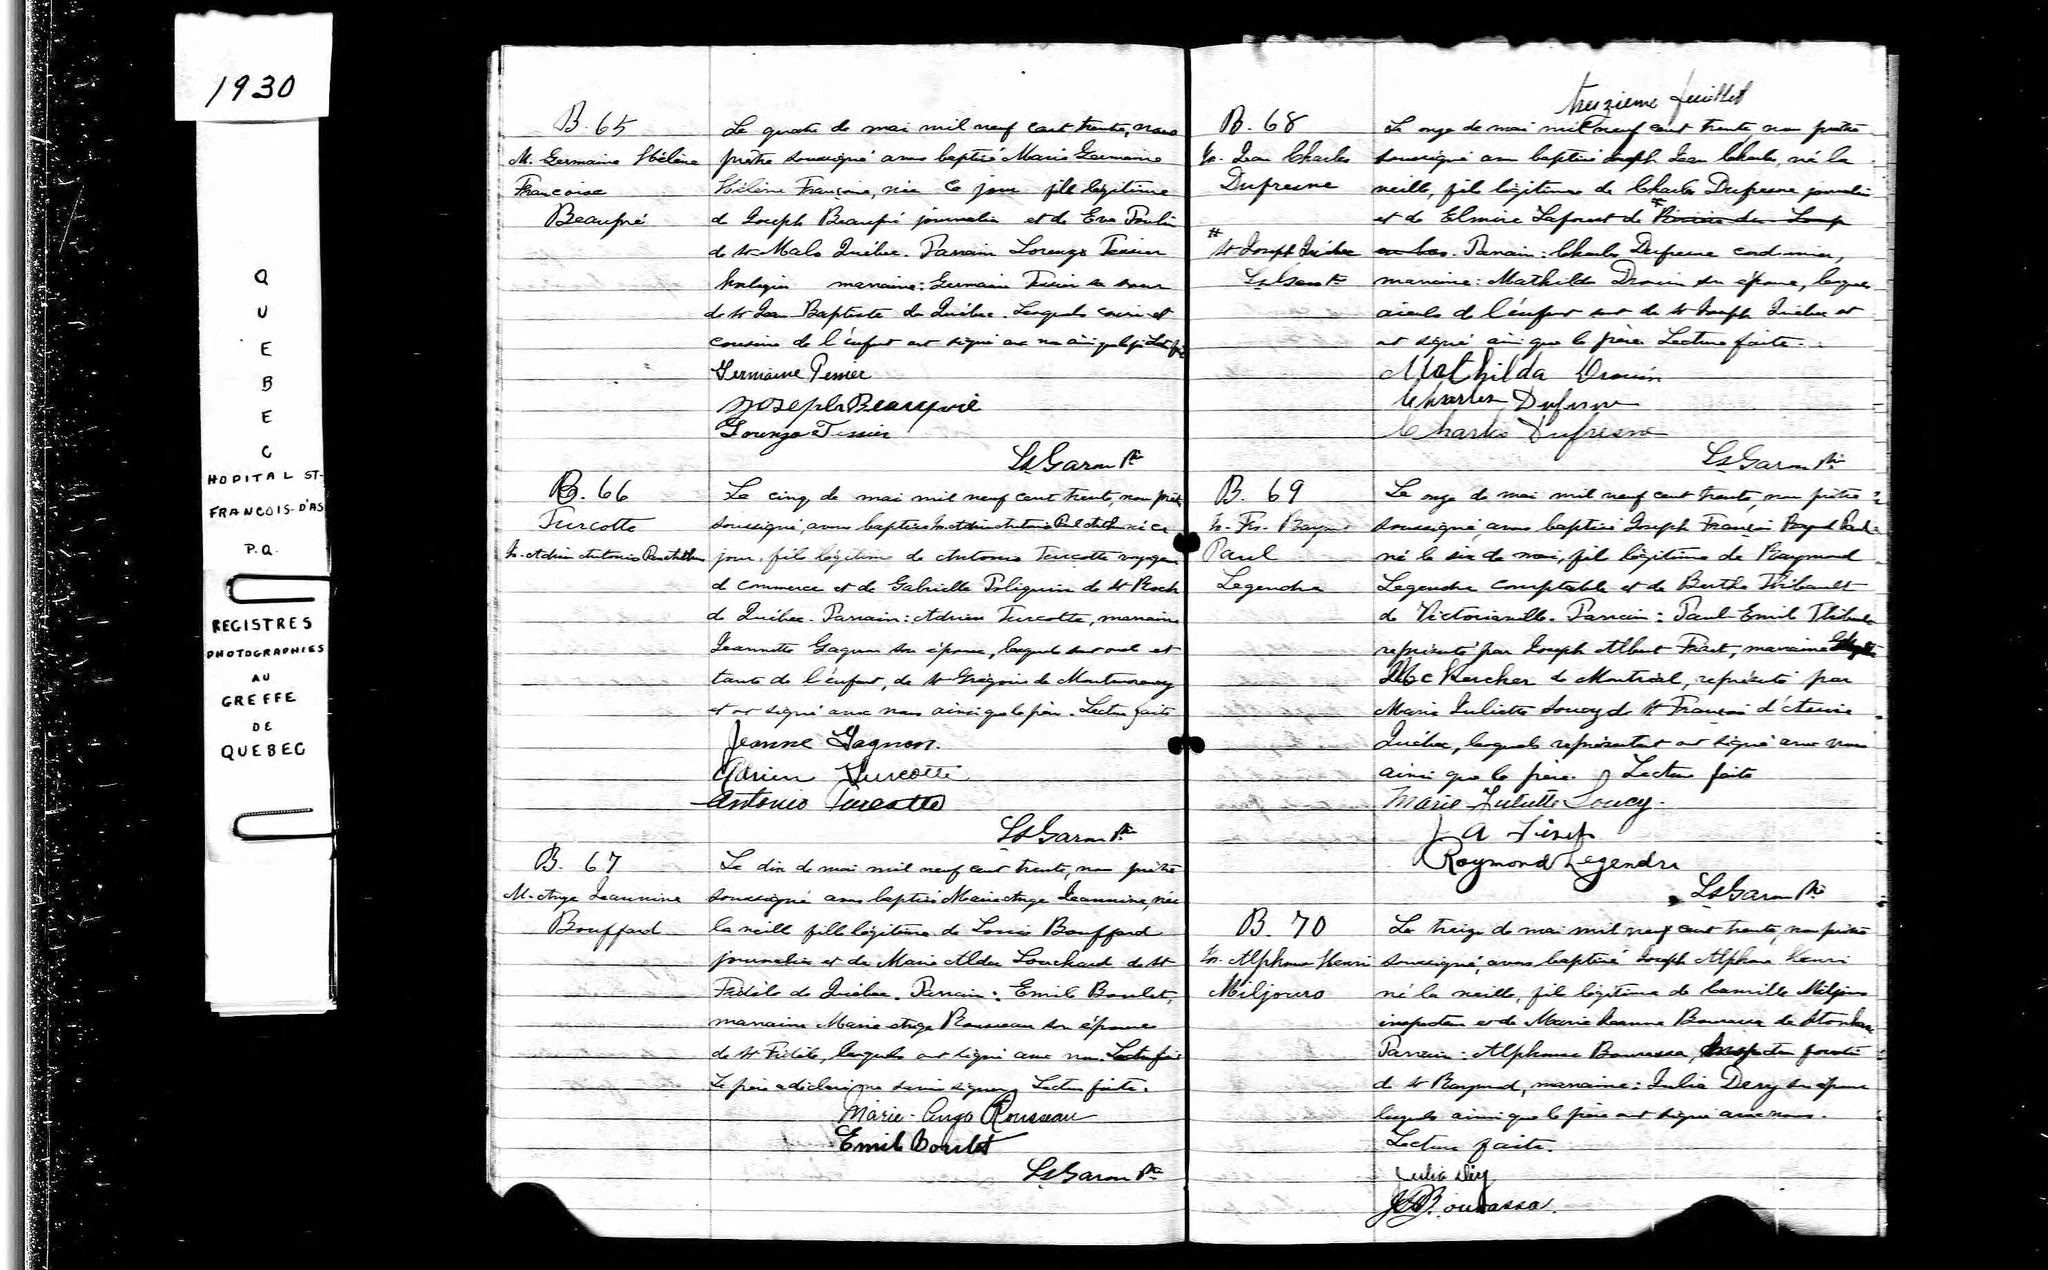 1930
QUEBEC
HOPITAL ST-
FRANCOIS-D'AS
P.Q.
REGISTRES
PHOTOGRAPHIES
AU
GREFFE
DE
QUEBEC
B. 65
M. Germaine Hélène
Françoise
Beaupré
Le quatre de mai mil neuf cent trente, nous
prêtre soussigné avons baptisé Marie Germaine
Hélène Françoise, née ce jour fille légitime
de Joseph Beaupré journalier et de Eva Poulin
de St Malo Québec. Parrain Lorenzo Tessier
marraine: Germaine Tessier sa soeur
de St Jean Baptiste de Québec. Lesquels cousin et
cousine de l'enfant ont signé avec nous ainsi que le père Lecture faite
Germaine Tessier
Joseph Beaupré
Lorenzo Tessier
Ls Garon Ptre
B. 66
Turcotte
Js-Adrien Antonio Paul Arthur
Le cinq de mai mil neuf cent trente, nous prêtre
soussigné, avons baptisé Js Adrien Antonio Paul Arthur né ce
jour, fils légitime de Antonio Turcotte voyageur
de commerce et de Gabrielle Poliquin de St Roch
de Québec. Parrain: Adrien Turcotte, marraine
Jeannette Gagnon son épouse, lesquels sont oncle et
tante de l'enfant, de St Grégoire de Montmorency
et ont signé avec nous ainsi que le père. Lecture faite
Jeanne Gagnon.
Adrien Turcotte
Antonio Turcotte
Ls Garon Ptre
B. 67
M-Ange Jeannine
Bouffard
Le dix de mai mil neuf cent trente, nous prêtre
soussigné avons baptisé Marie Ange Jeannine, née
la veille fille légitime de Louis Bouffard
journalier et de Marie Alda Louchard de St
Fidèle de Québec. Parrain: Emile Boulet,
marraine Marie Ange Rousseau son épouse
de St Fidèle, lesquels ont signé avec nous. Lecture faite
Le père a déclaré ne savoir signer Lecture faite.
Marie-Ange Rousseau
Emile Boulet
Ls Garon Ptre
treizième feuillet
B. 68
Js. Jean Charles
Dufresne
# St Joseph Québec
Ls Garon Ptre
Le onze de mai mil neuf cent trente, nous prêtre
soussigné avons baptisé Joseph Jean Charles, né la
veille, fils légitime de Charles Dufresne journalier
et de Elmire Laforest de # Rivière du Loup
en bas. Parrain: Charles Dufresne cordonnier,
marraine: Mathilda Drouin son épouse, lesquels
aieuls de l'enfant sont de St Joseph Québec et
ont signé ainsi que le père. Lecture faite.
Mathilda Drouin
Charles Dufresne
Charles Dufresne
Ls Garon Ptre
B. 69
Js. Frs. Raymond
Paul
Legendre
Le onze de mai mil neuf cent trente, nous prêtre
soussigné, avons baptisé Joseph François Raymond Paul
né le six de mai, fils légitime de Raymond
Legendre comptable et de Berthe Thibault
de Victoriaville. Parrain: Paul-Emile Thibault
représenté par Joseph Albert marraine
McKercher de Montréal, représentée par
Marie Juliette Soucy de St François d'Assise
Québec, lesquels représentant ont signé avec nous
ainsi que le père. Lecture faite
Marie Juliette Soucy.
J A
Raymond Legendre
Ls Garon Ptre
B. 70
Js. Alphonse Henri
Miljours
Le treize de mai mil neuf cent trente, nous prêtre
soussigné, avons baptisé Joseph Alphonse Henri
né la veille, fils légitime de Camille Miljours
inspecteur et de Marie Jeanne Bourassa de Stoneham
Parrain: Alphonse Bourassa, Inspecteur forestier
de St Raymond, marraine: Julia Dery son épouse
lesquels ainsi que le père ont signé avec nous.
Lecture faite.
Julia Déry
Bourassa.